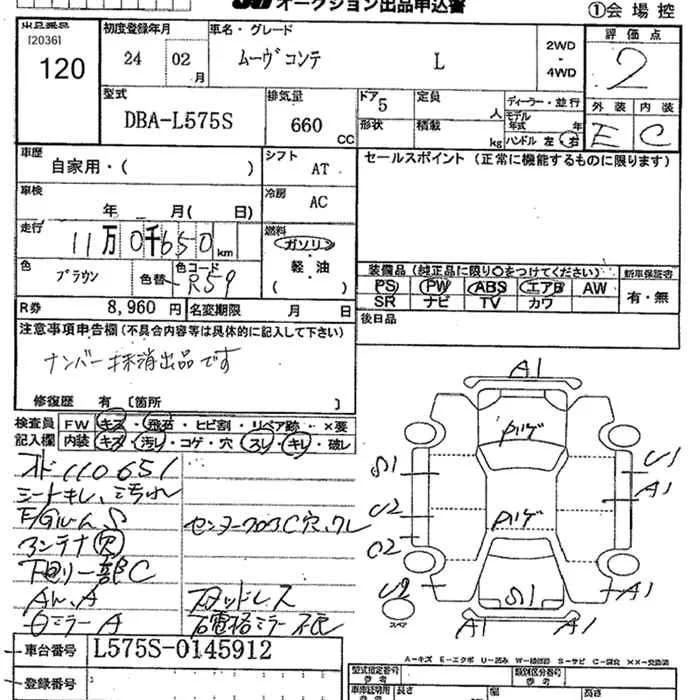 オークション出品申込書
①会場控
[2036]
120
初度登録年月
24 02月
車名・グレード
ムーヴコンテ L
2WD
・
4WD
評価点
2
型式
DBA-L575S
排気量
660 CC
ドア 5
形状
定員 人
積載 kg
ディーラー・並行
モデル年式 年
ハンドル 左 右
外装 内装
E C
車歴
自家用・( )
シフト
AT
セールスポイント(正常に機能するものに限ります)
車検
年 月( 日)
冷房
AC
走行
11万0千650km
燃料
ガソリン
軽・油
( )
色
ブラウン
色替
色コード
R59
装備品(純正品に限り○をつけてください)
新車保証書
PS PW ABS エアB AW
SR ナビ TV カワ
有・無
R券 8,960円
名変期限 月 日
後日品
注意事項申告欄(不具合内容等は具体的に記入して下さい)
ナンバー抹消出品です
修復歴 有 [箇所 ]
検査員記入欄
FW キズ・飛石・ヒビ割・リペア跡・×要
内装 キズ・汚レ・コゲ・穴・スレ・キレ・破レ
オド110651
シートキレ、汚れ
E/Gルーム S
センターフロアC穴、クレ
アンテナ穴
下回リ一部C
Aw、A
スタッドレス
Oミラー A
A1
S1
U2
U1
A1
U2
S1
A1
A1
A1
スペア
車台番号
L575S-0145912
登録番号
A-キズ E-エクボ U-凹み W-補修跡 S-サビ C-腐蝕 ××-交換済
型式指定番号
参考
類別区分番号
参考
長さ
幅
高さ